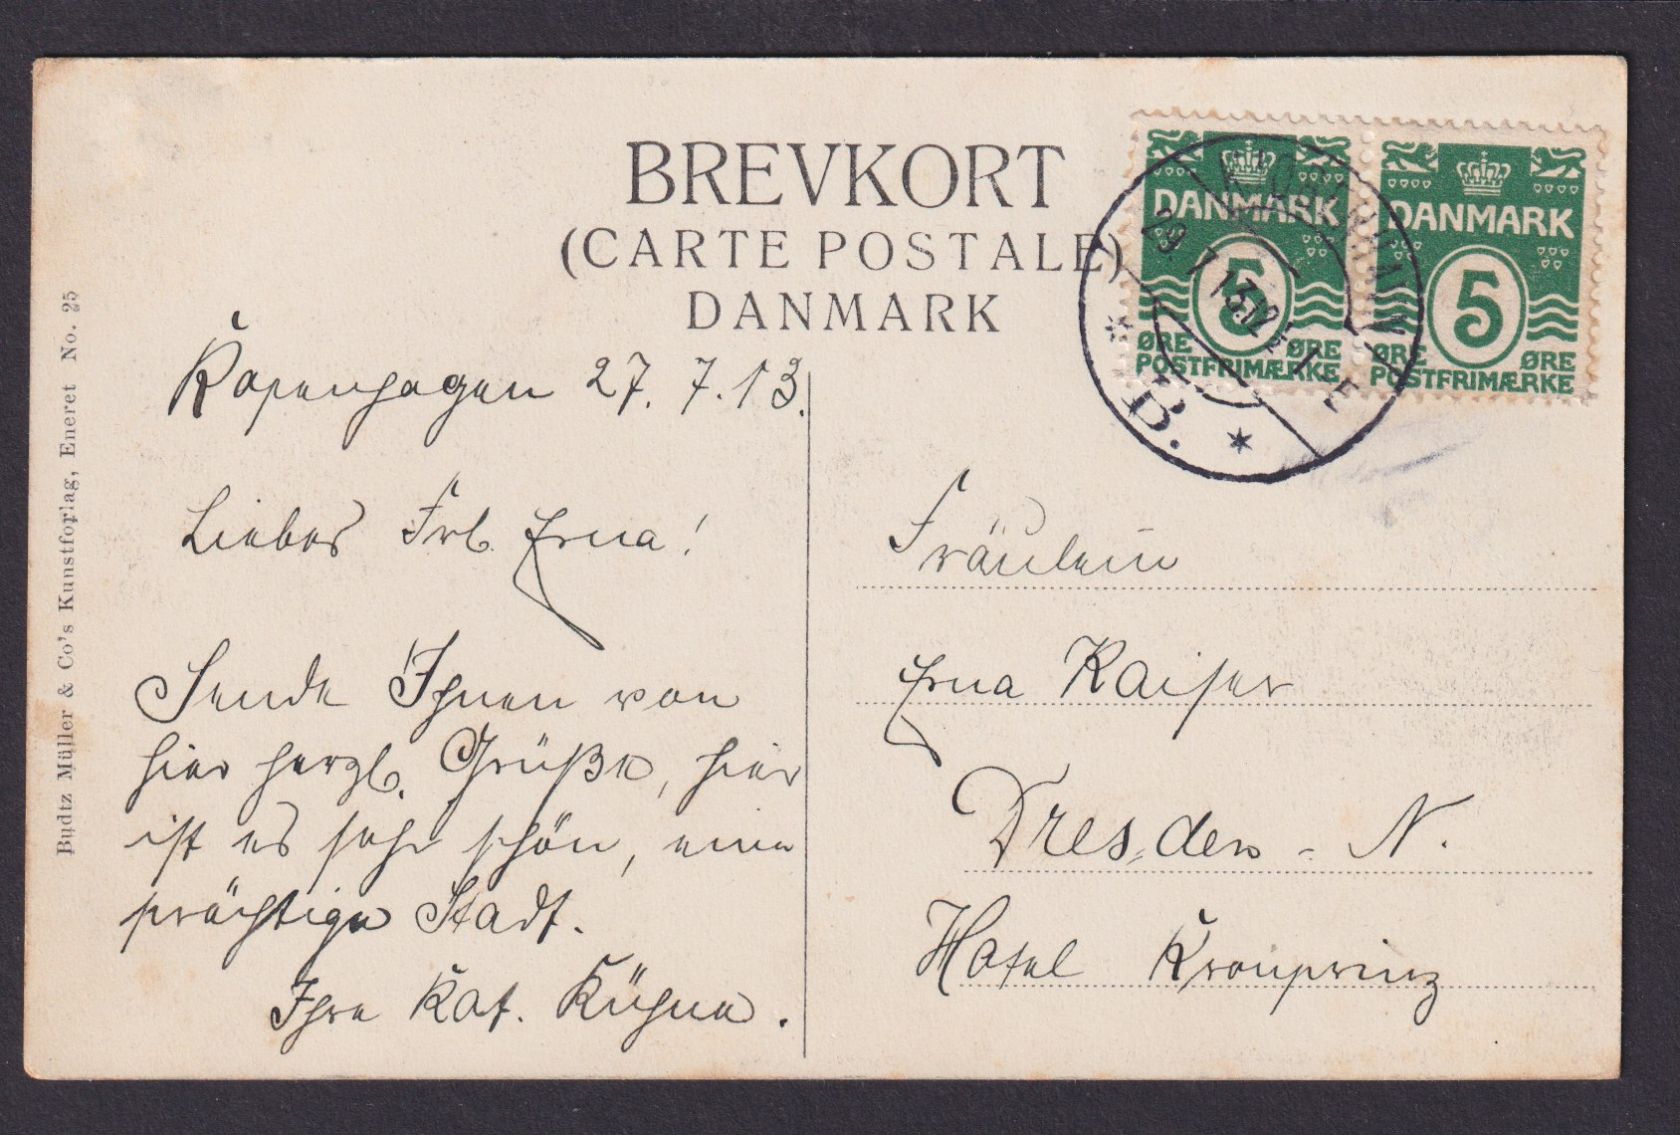 BREVKORT
(CARTE POSTALE)
DANMARK
DANMARK
5
ØRE ØRE
POSTFRIMÆRKE
DANMARK
5
ØRE ØRE
POSTFRIMÆRKE
KJØBENHAVN
29.7.13.
B.
Budtz Müller & Co's Kunstforlag, Eneret No. 25
Kopenhagen 27.7.13.
Liebes Frl. Erna!
Sende Ihnen von
hier herzl. Grüße, hier
ist es sehr schön, eine
prächtige Stadt.
Ihre Kat. Kühne.
Fräulein
Erna Kaiser
Dresden-N.
Hotel Kronprinz